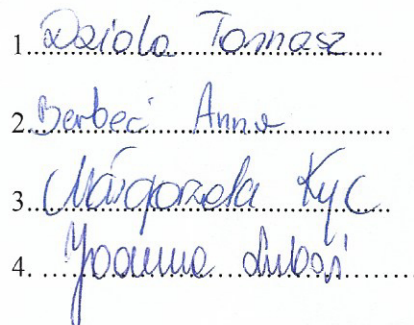 1. Dziola Tomasz
2. Berbeć Anna
3. Małgorzata Kyc
4. Joanna Luboń